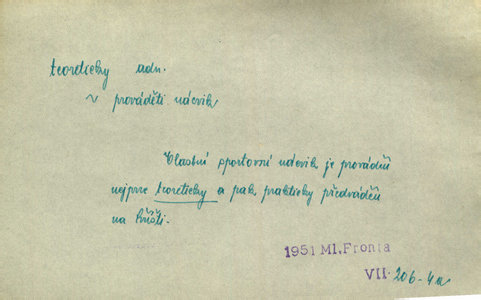 teoreticky adv.
~ prováděti nácvik
Vlastní sportovní nácvik je prováděn
nejprve teoreticky a pak prakticky předváděn
na hřišti.
1951 Ml. Fronta
VII. 206-4a